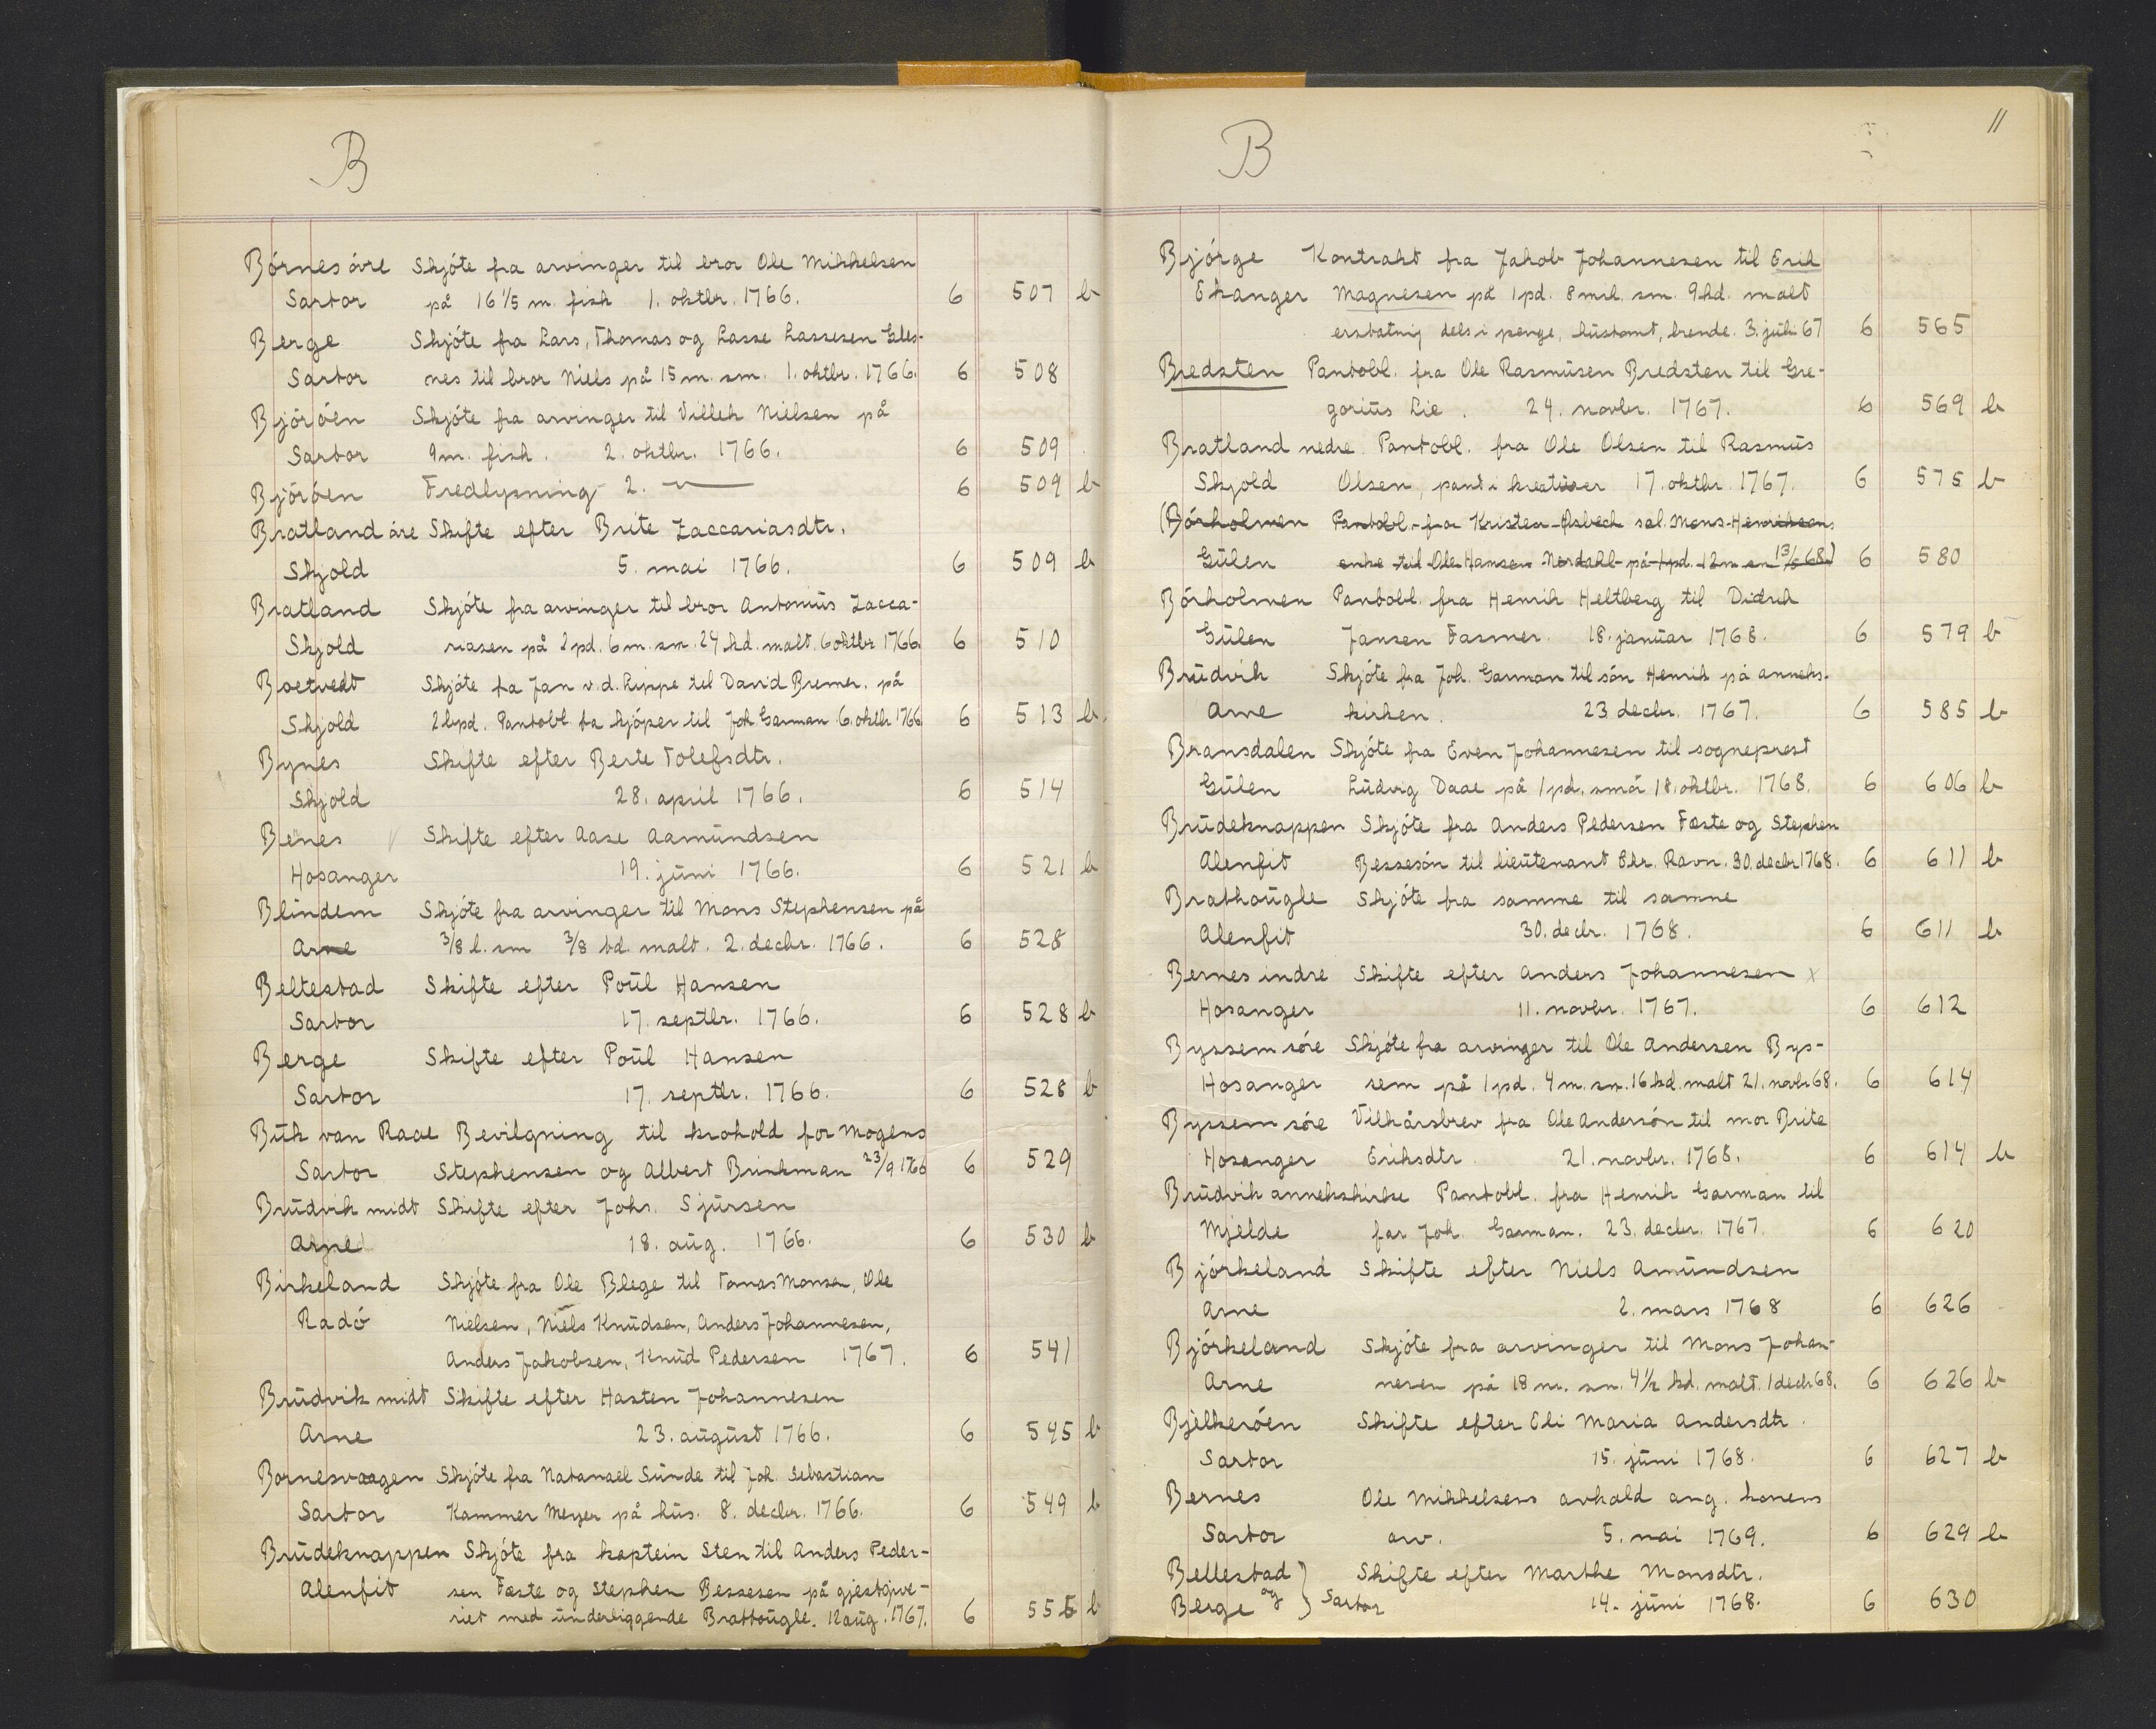 B
Börnes övre Skjöte fra arvinger til bror Ole Mikkelsen
Sartor på 16 1/5 m. fisk 1. oktbr. 1766. 6 507 b
Berge Skjöte fra Lars, Thomas og Lasse Lassesen Gles-
Sartor nes til bror Niels på 15 m. sm. 1. oktbr. 1766. 6 508
Björöen Skjöte fra arvinger til Villek Nielsen på
Sartor 9 m. fisk. 2. oktbr. 1766. 6 509
Björöen Fredlysning 2. — 6 509 b
Bratland öre Skifte efter Brite Zaccariasdtr.
Skjold 5. mai 1766. 6 509 b
Bratland Skjöte fra arvinger til bror Antonius Zacca-
Skjold riasen på 2 pd. 6 m. sm. 24 kd. malt. 6 oktbr 1766. 6 510
Boetvedt Skjöte fra Jan v. d. Lippe til David Bremer. på
Skjold 2 lspd. Pantobl. fra kjöper til Joh Garman 6. oktbr 1766 6 513 b.
Bynes Skifte efter Berte Tolefsdtr.
Skjold 28. april 1766. 6 514
Benes Skifte efter Aase Aamundsen
Hosanger 19. juni 1766. 6 521 b
Blindem Skjöte fra arvinger til Mons Stephensen på
Arne 3/8 l. sm 3/8 td. malt. 2. decbr. 1766. 6 528
Beltestad Skifte efter Poul Hansen
Sartor 17. septbr. 1766. 6 528 b
Berge Skifte efter Poul Hansen
Sartor 17. septbr. 1766. 6 528 b
Buk van Raae Bevilgning til krohold for Mogens
Sartor Stephensen og Albert Brinkman 23/9 1766 6 529
Brudvik midt Skifte efter Johs. Sjursen
Arne 18. aug. 1766. 6 530 b
Birkeland Skjöte fra Ole Blege til Tomas Monsen, Ole
Radö Nielsen, Niels Knudsen, Anders Johannesen,
Anders Jakobsen, Knud Pedersen 1767. 6 541
Brudvik midt Skifte efter Hasten Johannesen
Arne 23. august 1766. 6 545 b
Bornesvaagen Skjöte fra Natanael Sunde til Joh. Sebastian
Sartor Kammer Meyer på hus. 8. decbr. 1766. 6 549 b
Brudeknappen Skjöte fra kaptein Sten til Anders Peder-
Alenfit sen Fæste og Stephen Bessesen på gjestgive-
riet med underliggende Brattougle. 12 aug. 1767. 6 555 b
B
11
Björge Kontrakt fra Jakob Johannesen til Erik
Ekanger Magnesen på 1 pd. 8 mrk. sm. 9 kd. malt
erstatnig dels i penge, hustomt, brende. 3. juli 67 6 565
Bredsten Pantobl. fra Ole Rasmusen Bredsten til Gre-
gorius Lie. 24. novbr. 1767. 6 569 b
Bratland nedre Pantobl. fra Ole Olsen til Rasmus
Skjold Olsen, pant i kreaturer 17. oktbr. 1767. 6 575 b
(Börholmen Pantobl. fra Kristen Øsbech sal. Mons Henriksens
Gulen enke til Ole Hansen Nordahl på 1 pd. 12 m sm 13/5 68) 6 580
Börholmen Pantobl. fra Henrik Heltberg til Didrik
Gulen Jansen Fasmer. 18. januar 1768. 6 579 b
Brudvik Skjöte fra Joh. Garman til sön Henrik på anneks-
Arne kirken. 23 decbr. 1767. 6 585 b
Bransdalen Skjöte fra Even Johannesen til sogneprest
Gulen Ludvig Daae på 1 pd. smör 18. oktbr. 1768. 6 606 b
Brudeknappen Skjöte fra Anders Pedersen Fæste og Stephen
Alenfit Bessesön til lieutenant Chr. Ravn. 30. decbr 1768. 6 611 b
Brathougle Skjöte fra samme til samme
Alenfit 30. decbr. 1768. 6 611 b
Bernes indre Skifte efter Anders Johannesen x
Hosanger 11. novbr. 1767. 6 612
Byssem söre Skjöte fra arvinger til Ole Andersen Bys-
Hosanger sem på 1 pd. 4 m. sm. 16 kd. malt 21. novbr 68. 6 614
Byssem söre Vilkårsbrev fra Ole Andersön til mor Brite
Hosanger Eriksdtr. 21. novbr. 1768. 6 614 b
Brudvik annekskirke Pantobl. fra Henrik Garman til
Mjelde far Joh. Garman. 23. decbr. 1767. 6 620
Björkeland Skifte efter Niels Amundsen
Arne 2. mars 1768 6 626
Björkeland Skjöte fra arvinger til Mons Johan-
Arne nesen på 18 m. sm. 4 1/2 kd. malt. 1 decbr 68. 6 626 b
Bjelkeröen Skifte efter Eli Maria Andersdtr.
Sartor 15. juni 1768. 6 627 b
Bernes Ole Mikkelsens avkald ang. konens
Sartor arv. 5. mai 1769. 6 629 b
Bellestad Skifte efter Marthe Monsdtr.
og
Berge Sartor 14. juni 1768. 6 630